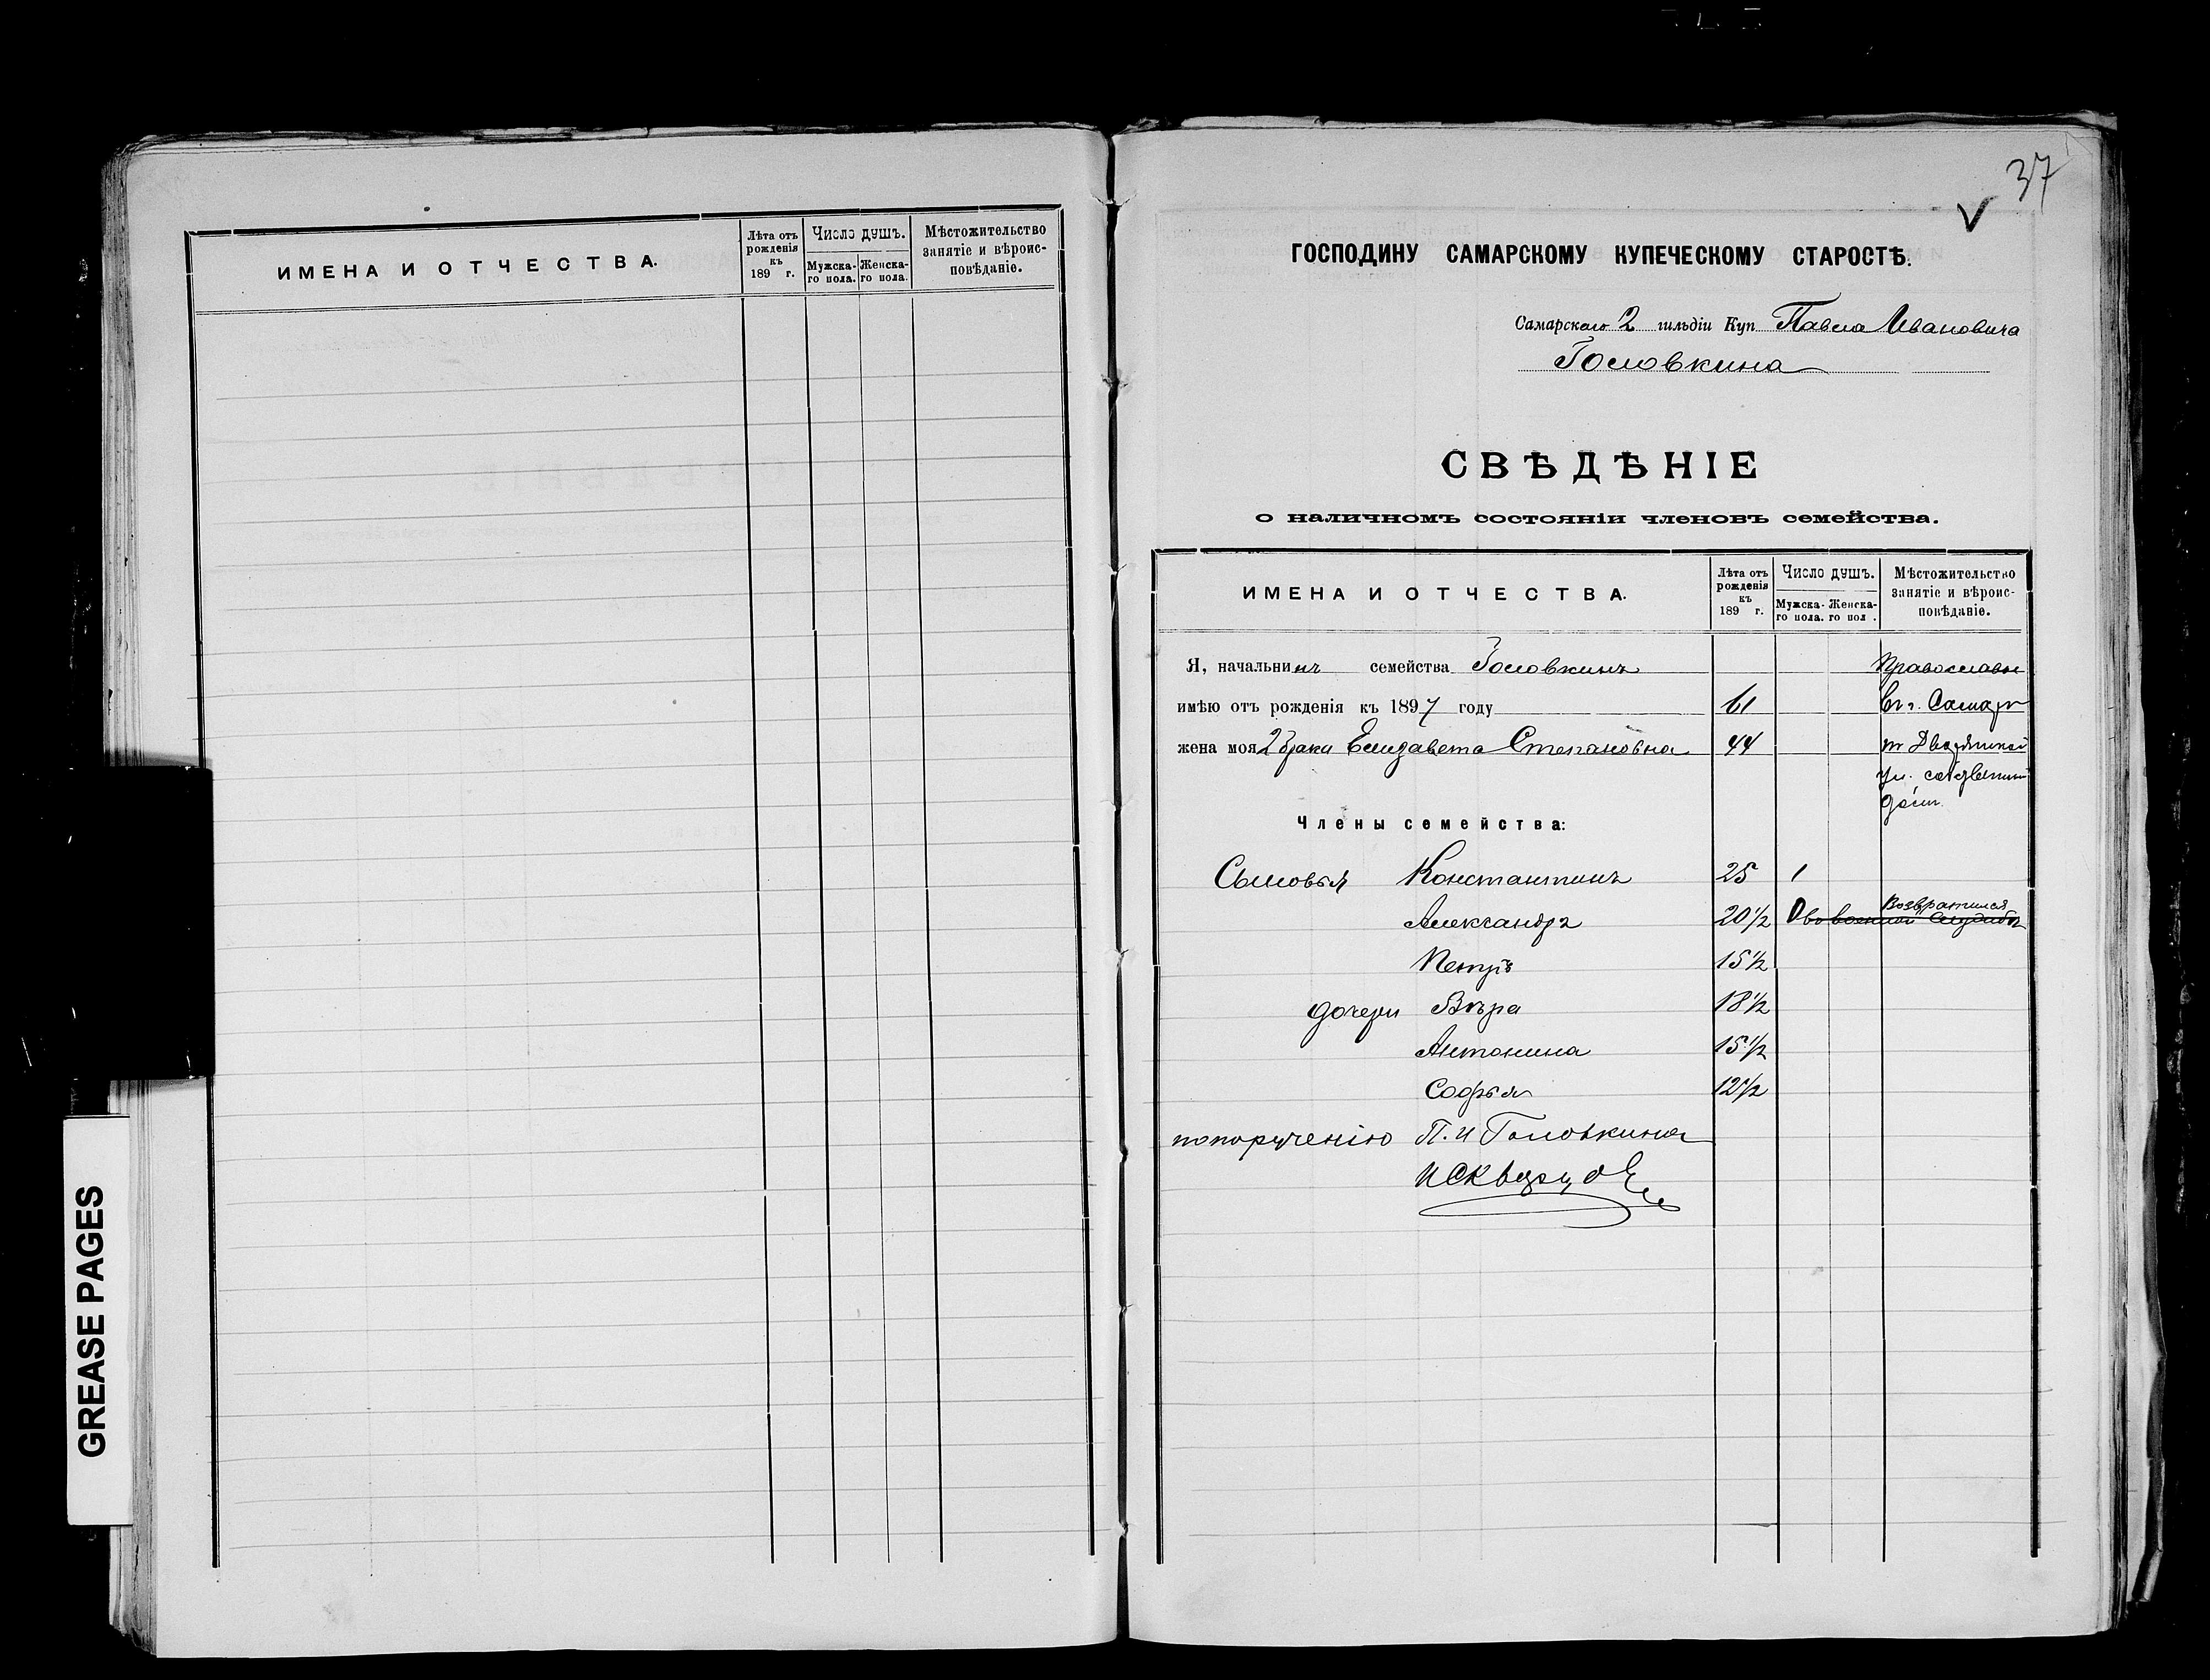 ИМЕНА И ОТЧЕСТВА.
Лѣта отъ рожденія къ 189 г.
Число душъ.
Мужска-го пола.
Женска-го пола.
Мѣстожительство занятіе и вѣроис-повѣданіе.
37
ГОСПОДИНУ САМАРСКОМУ КУПЕЧЕСКОМУ СТАРОСТѢ.
Самарскаго 2 гильдіи Куп Павла Ивановича
Головкина
СВѢДѢНІЕ
о наличномъ состояніи членовъ семейства.
ИМЕНА И ОТЧЕСТВА.
Лѣта отъ рожденія къ 189 г.
Число душъ.
Мужска-го пола.
Женска-го пол .
Мѣстожительство занятіе и вѣроис-повѣданіе.
Я, начальникъ семейства Головкинъ Православн
имѣю отъ рожденія къ 1897 году 61 Въ г. Самарѣ
жена моя 2 брака Елизавета Степановна 44 Дворянской
ул. собственный
домъ
Члены семейства:
Сыновья Константинъ 25 1
Возвратился
Александръ 20 1/2 0 во военной службѣ
Петръ 15 1/2
дочери Вѣра 18 1/2
Антонина 15 1/2
Софья 12 1/2
по порученію П. И Головкина
И Скворцовъ
GREASE PAGES